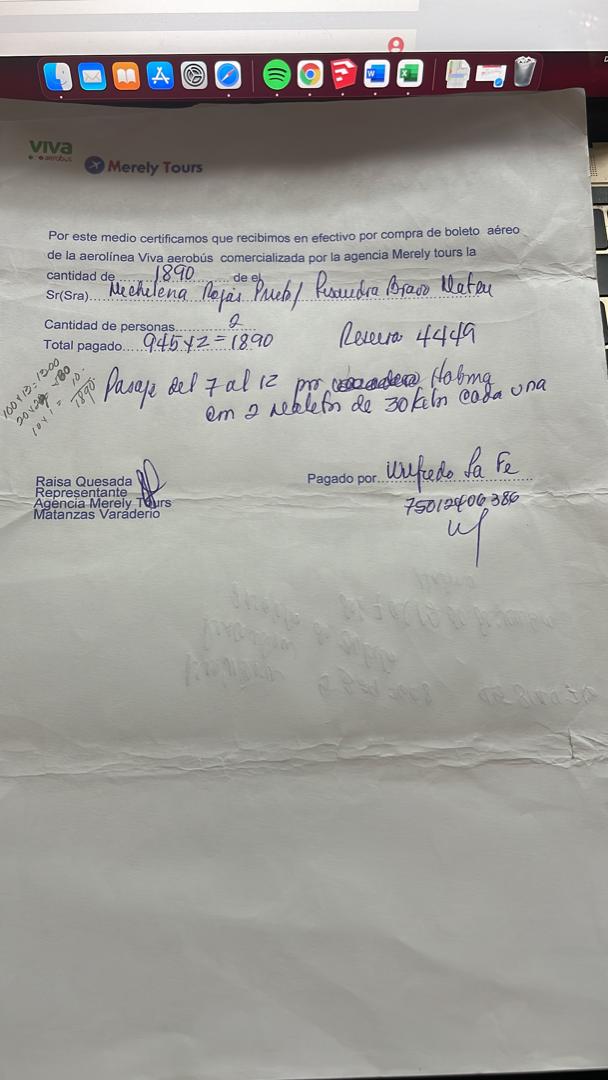 viva
aerobus
Merely Tours
Por este medio certificamos que recibimos en efectivo por compra de boleto aéreo
de la aerolínea Viva aerobús comercializada por la agencia Merely tours la
cantidad de.....1890.....de el
Sr(Sra)....Mechelena Rojas Prieto/ Bravo Mateu
Cantidad de personas.....2
Total pagado....945x2=1890
Reserva 4449
100x13=1300
10x1=10
1890
Pasaje del 7 al 12 por Habana
con 2 maletas de 30 kilos cada una
Raisa Quesada
Representante
Agencia Merely Tours
Matanzas Varadero
Pagado por...Wilfredo La Fe
75012406386